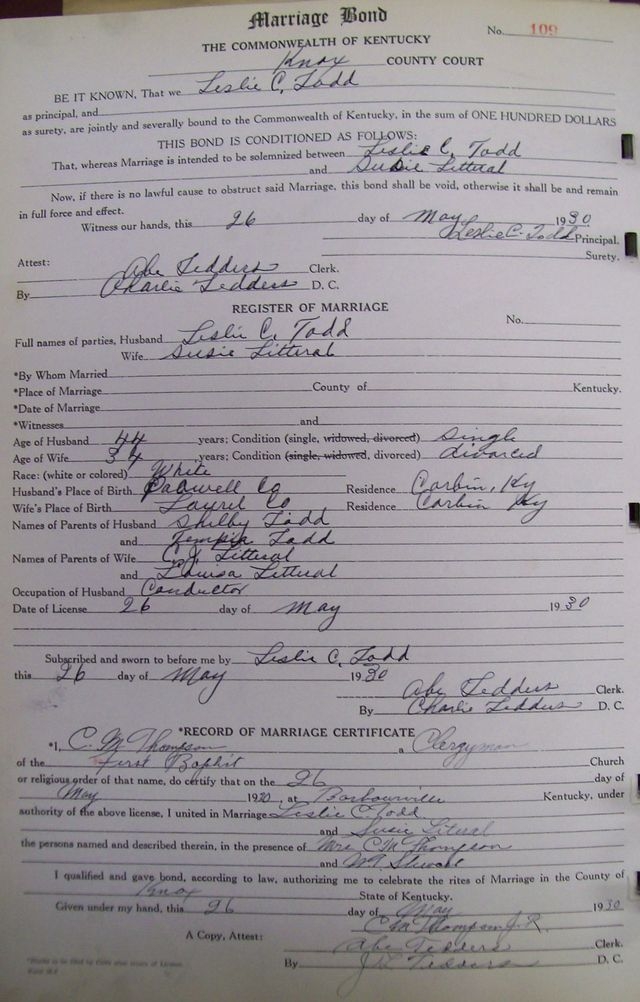 Marriage Bond
No. 109
THE COMMONWEALTH OF KENTUCKY
Knox COUNTY COURT
BE IT KNOWN, That we Leslie C. Todd
as principal, and
as surety, are jointly and severally bound to the Commonwealth of Kentucky, in the sum of ONE HUNDRED DOLLARS
THIS BOND IS CONDITIONED AS FOLLOWS:
That, whereas Marriage is intended to be solemnized between Leslie C. Todd
and Susie Litteral
Now, if there is no lawful cause to obstruct said Marriage, this bond shall be void, otherwise it shall be and remain
in full force and effect.
Witness our hands, this 26 day of May 1930
Leslie C. Todd Principal.
Surety.
Attest:
Abe Tedders Clerk.
By Charlie Tedders D. C.
REGISTER OF MARRIAGE
No.
Full names of parties, Husband Leslie C. Todd
Wife Susie Litteral
*By Whom Married
*Place of Marriage County of Kentucky.
*Date of Marriage
*Witnesses and
Age of Husband 44 years; Condition (single, widowed, divorced) Single
Age of Wife 34 years; Condition (single, widowed, divorced) divorced
Race: (white or colored) White
Husband's Place of Birth Co Residence Corbin, Ky
Wife's Place of Birth Laurel Co Residence Corbin Ky
Names of Parents of Husband Shelby Todd
and Todd
Names of Parents of Wife C. J. Litteral
and Louisa Litteral
Occupation of Husband Conductor
Date of License 26 day of May 1930
Subscribed and sworn to before me by Leslie C. Todd
this 26 day of May 1930
Abe Tedders Clerk.
By Charlie Tedders D. C.
*RECORD OF MARRIAGE CERTIFICATE
*I, C. M. Thompson a Clergyman
of the First Baptist Church
or religious order of that name, do certify that on the 26 day of
May 1930, at Barbourville Kentucky, under
authority of the above license, I united in Marriage Leslie C Todd
and Susie Literal
the persons named and described therein, in the presence of Mrs C M Thompson
and
I qualified and gave bond, according to law, authorizing me to celebrate the rites of Marriage in the County of
Knox State of Kentucky.
Given under my hand, this 26 day of May 1930
C M Thompson J. R.
A Copy, Attest: Abe Tedders Clerk.
By Tedders D. C.